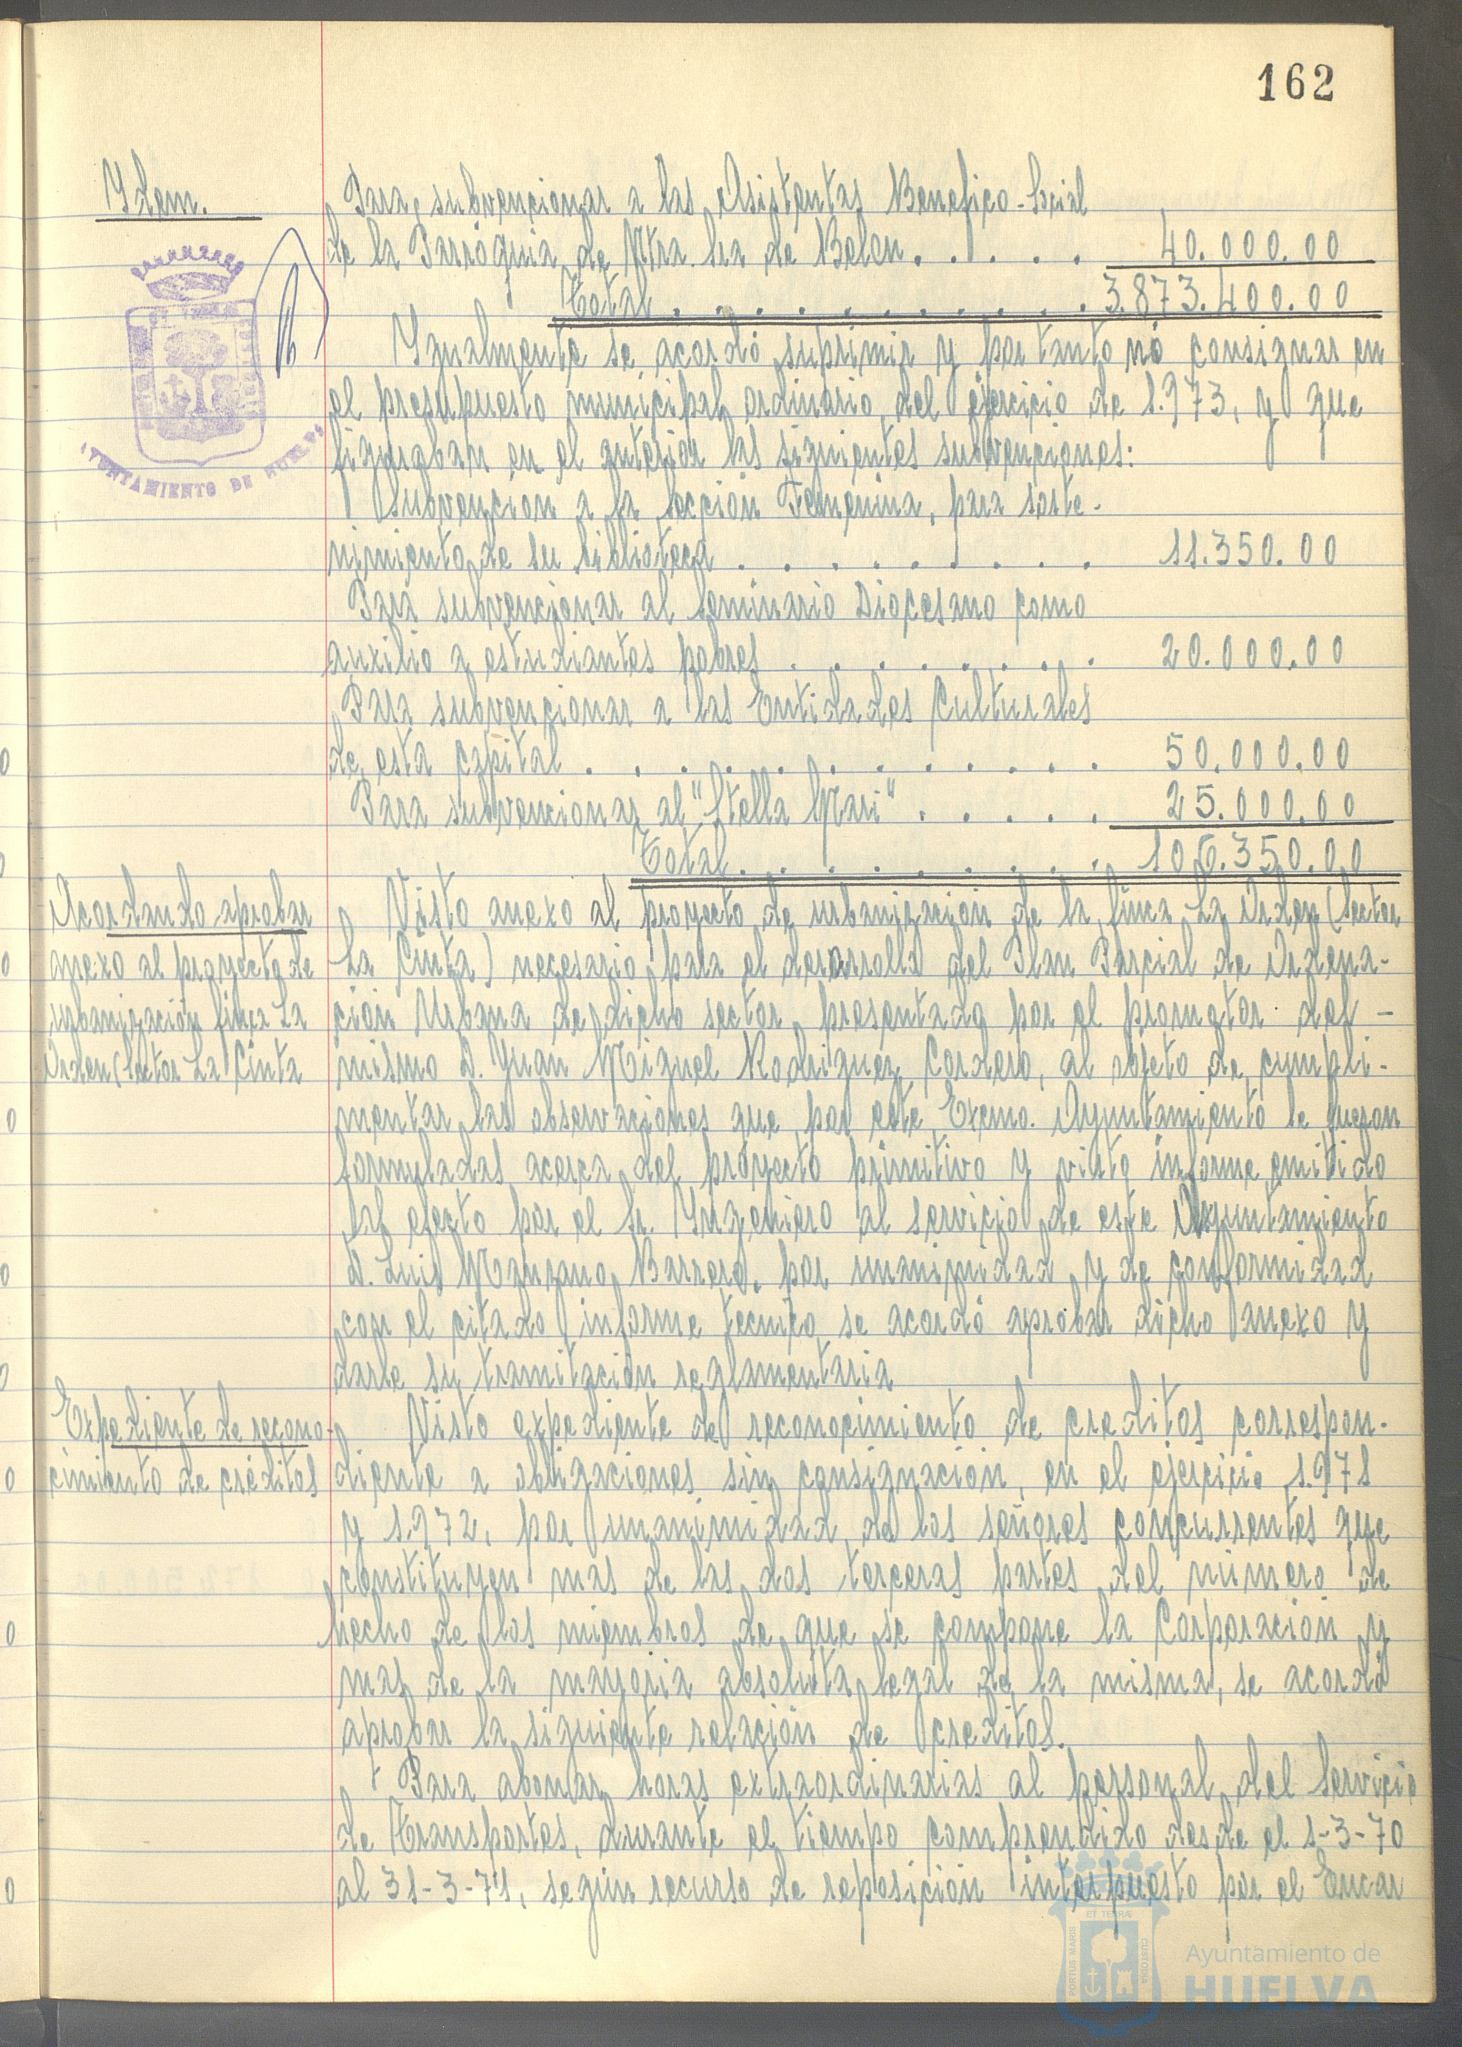 162
Ydem.
Para subvencionar a las Asistentas Benefico-Social
de la Parróquia de Ntra. Sra de Belen . . . . . 40.000.00
Total . . . . . . . . . . . 3.873.400.00
Ygualmente se acordó suprimir y por tanto nó consignar en
el presupuesto municipal ordinario del ejercicio de 1.973, y que
figuraban en el anterior las siguientes subvenciones:
Subvencion a la Seccion Femenina, para soste-
nimiento de su biblioteca . . . . . . . . . 11.350.00
Para subvencionar al Seminario Diocesano como
auxilio a estudiantes pobres . . . . . . . . 20.000.00
Para subvencionar a las Entidades Culturales
de esta capital . . . . . . . . . . . . 50.000.00
Para subvencionar al "Stella Mari" . . . . . 25.000.00
Total . . . . . . . . . . 106.350.00
AYUNTAMIENTO DE HUELVA
Acordando aprobar
anexo al proyecto de
urbanización finca La
Orden (Sector La Cinta
Visto anexo al proyecto de urbanizacion de la finca La Orden (Sector
La Cinta) necesario para el desarrollo del Plan Parcial de Ordena-
ción Urbana de dicho sector, presentado por el promotor del -
mismo D. Juan Miguel Rodriguez Cordero, al objeto de cumpli-
mentar las observaciones que por este Excmo. Ayuntamiento le fueron
formuladas acerca del proyecto primitivo y visto informe emitido
al efecto por el Sr. Yngeniero al servicio de este Ayuntamiento
D. Luis Manzano Barrero, por unanimidad y de conformidad
con el citado informe tecnico se acordó aprobar dicho anexo y
darle su tramitación reglamentaria
Expediente de recono-
cimiento de créditos
Visto expediente de reconocimiento de creditos correspon-
diente a obligaciones sin consignacion, en el ejercicio 1.971
y 1.972, por unanimidad de los señores concurrentes que
constituyen mas de las dos terceras partes del número de
hecho de los miembros de que se compone la Corporacion y
mas de la mayoria absoluta legal de la misma, se acordó
aprobar la siguiente relación de creditos.
Para abonar horas extraordinarias al personal del Servicio
de Transportes, durante el tiempo comprendido desde el 1-3-70
al 31-3-71, según recurso de reposición interpuesto por el Encar
ET TERRÆ
PORTUS MARIS
CUSTODIA
Ayuntamiento de
HUELVA